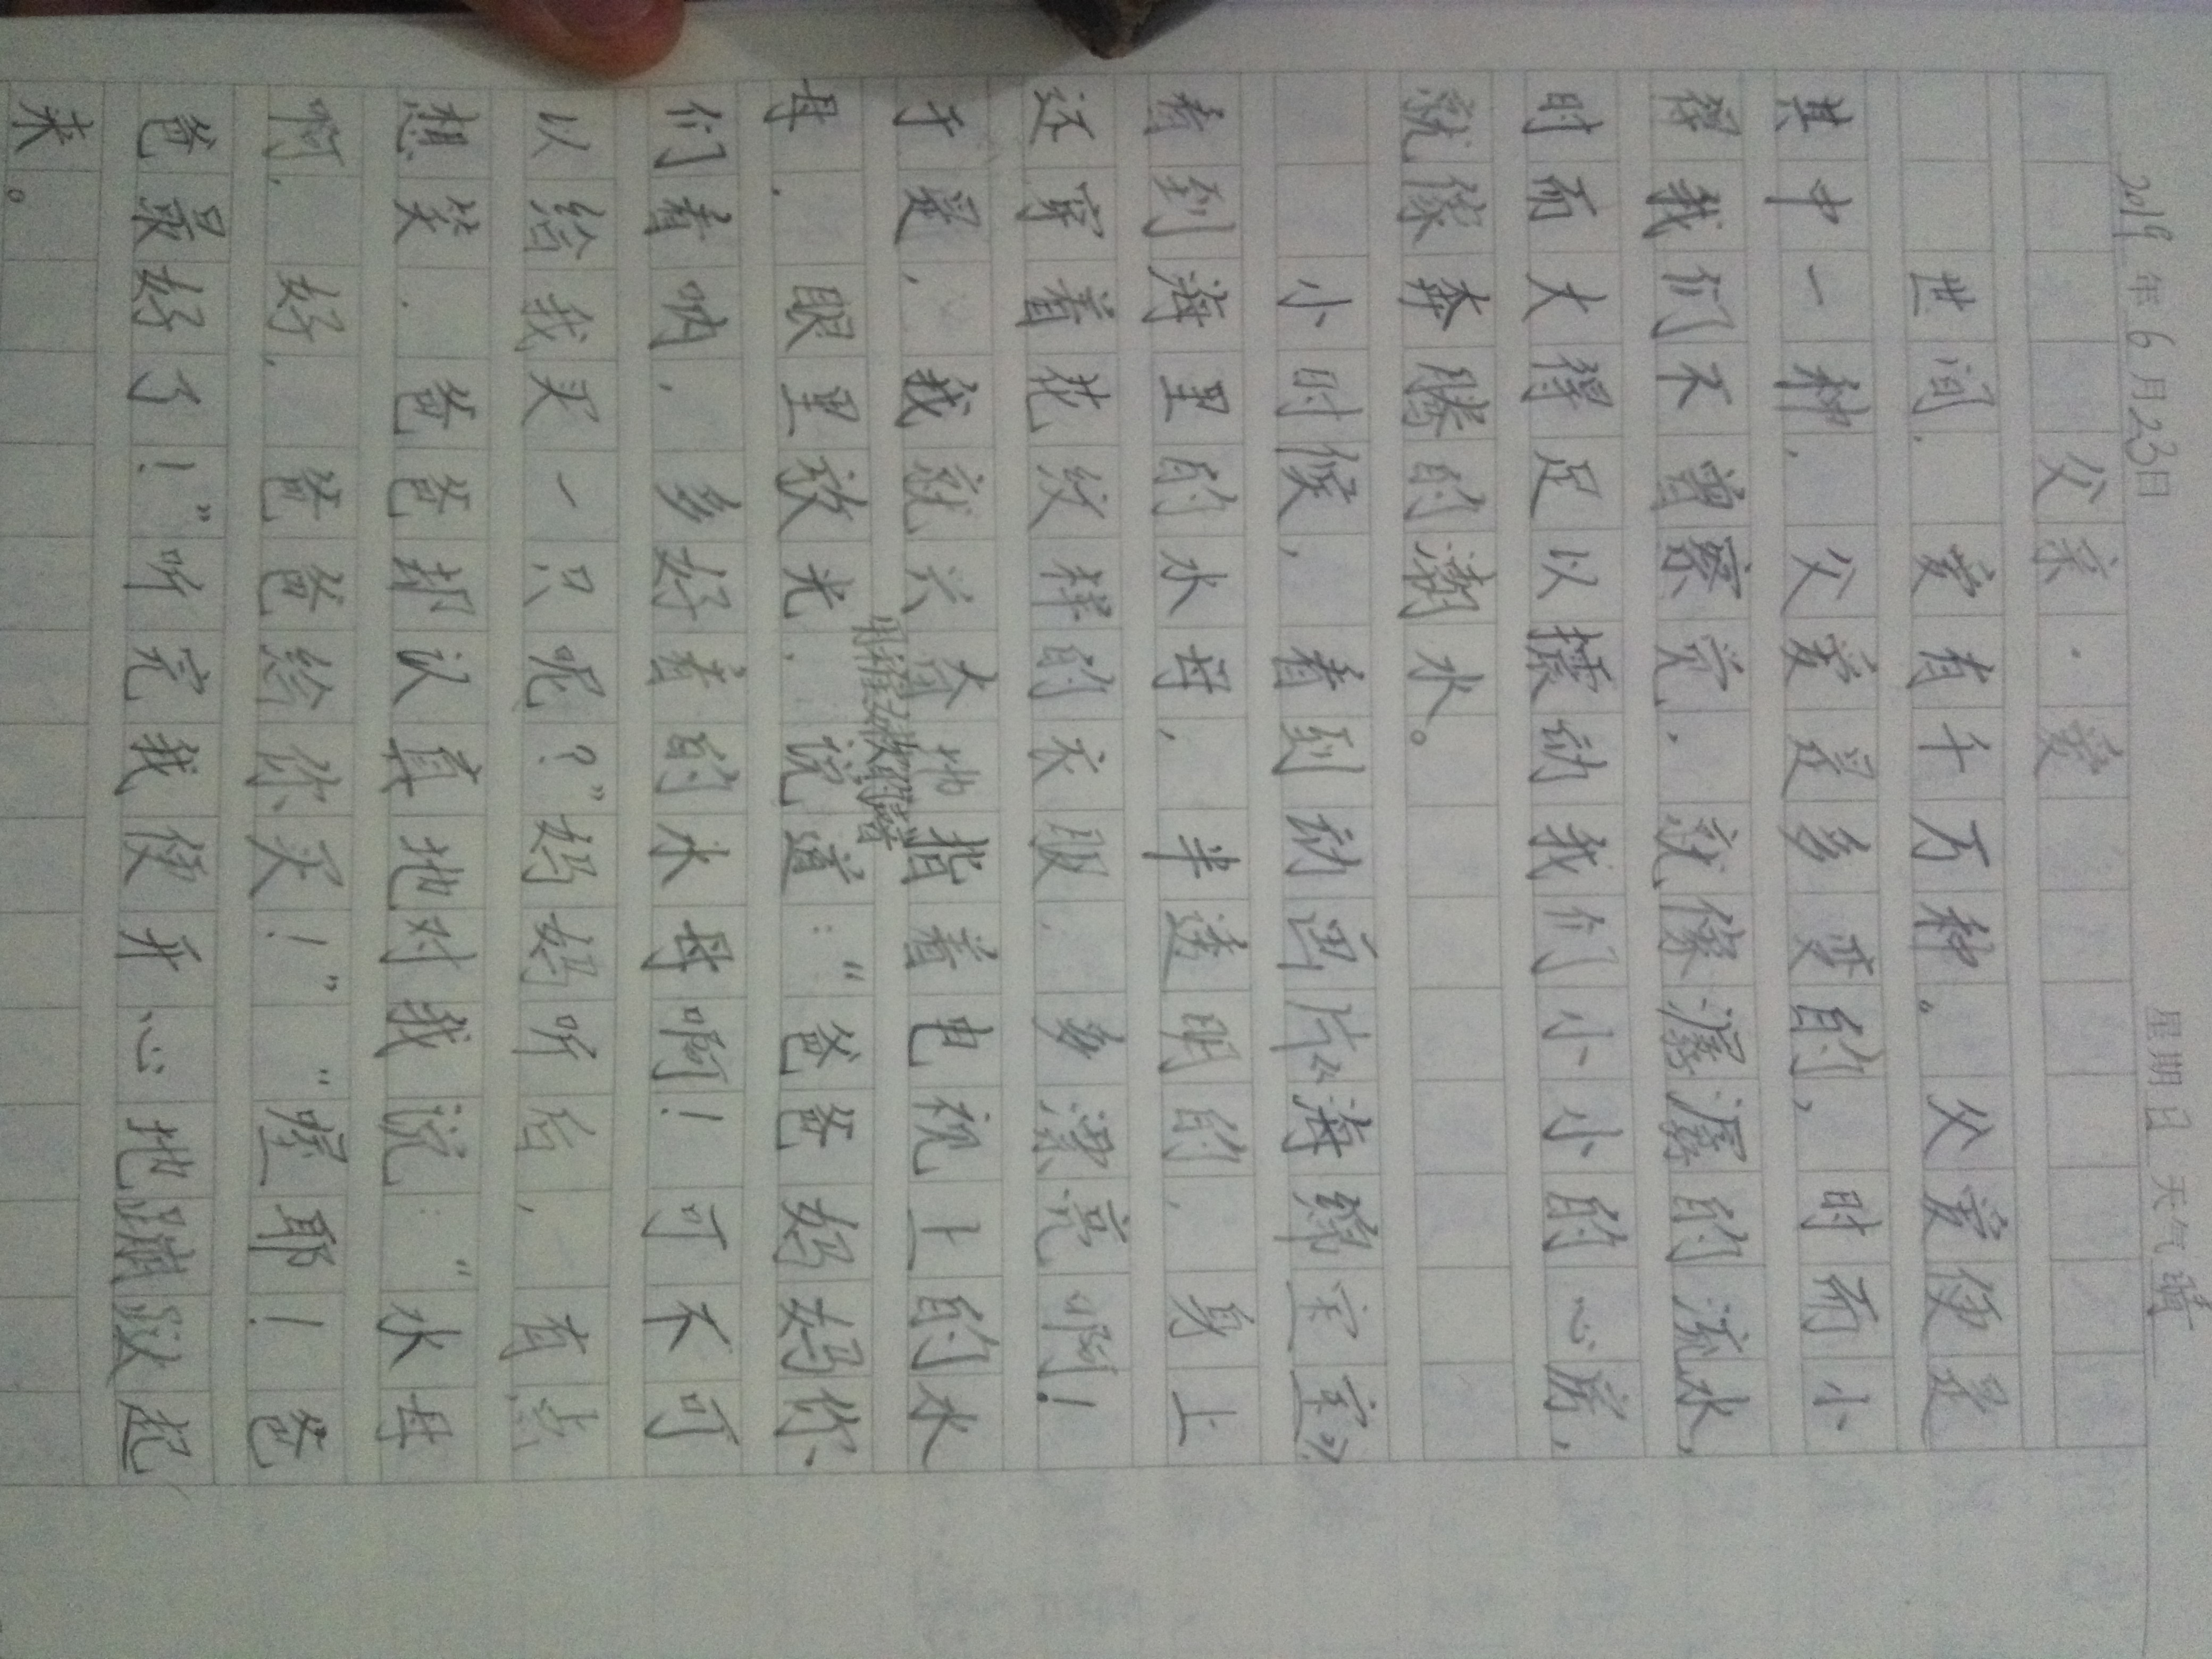 2019年6月23日 星期日 天气晴
父亲·爱
世间,爱有千万种。父爱便是
其中一种,父爱是多变的,时而小
得我们不曾察觉,就像潺潺的流水,
时而大得足以撼动我们小小的心房,
就像奔腾的潮水。
小时候,看到动画片《海绵宝宝》
看到海里的水母,半透明的,身上
还穿着花纹样的衣服,多漂亮啊!
于是,我就 地指着电视上的水
母,眼里放光,说道:“爸爸妈妈你
们看呐,多好看的水母啊!可不可
以给我买一只呢?”妈妈听后,有点
想笑,爸爸却认真地对我说:“水母
啊,好,爸爸给你买!”“喔耶!爸
爸最好了!”听完我便开心地蹦跶起
来。